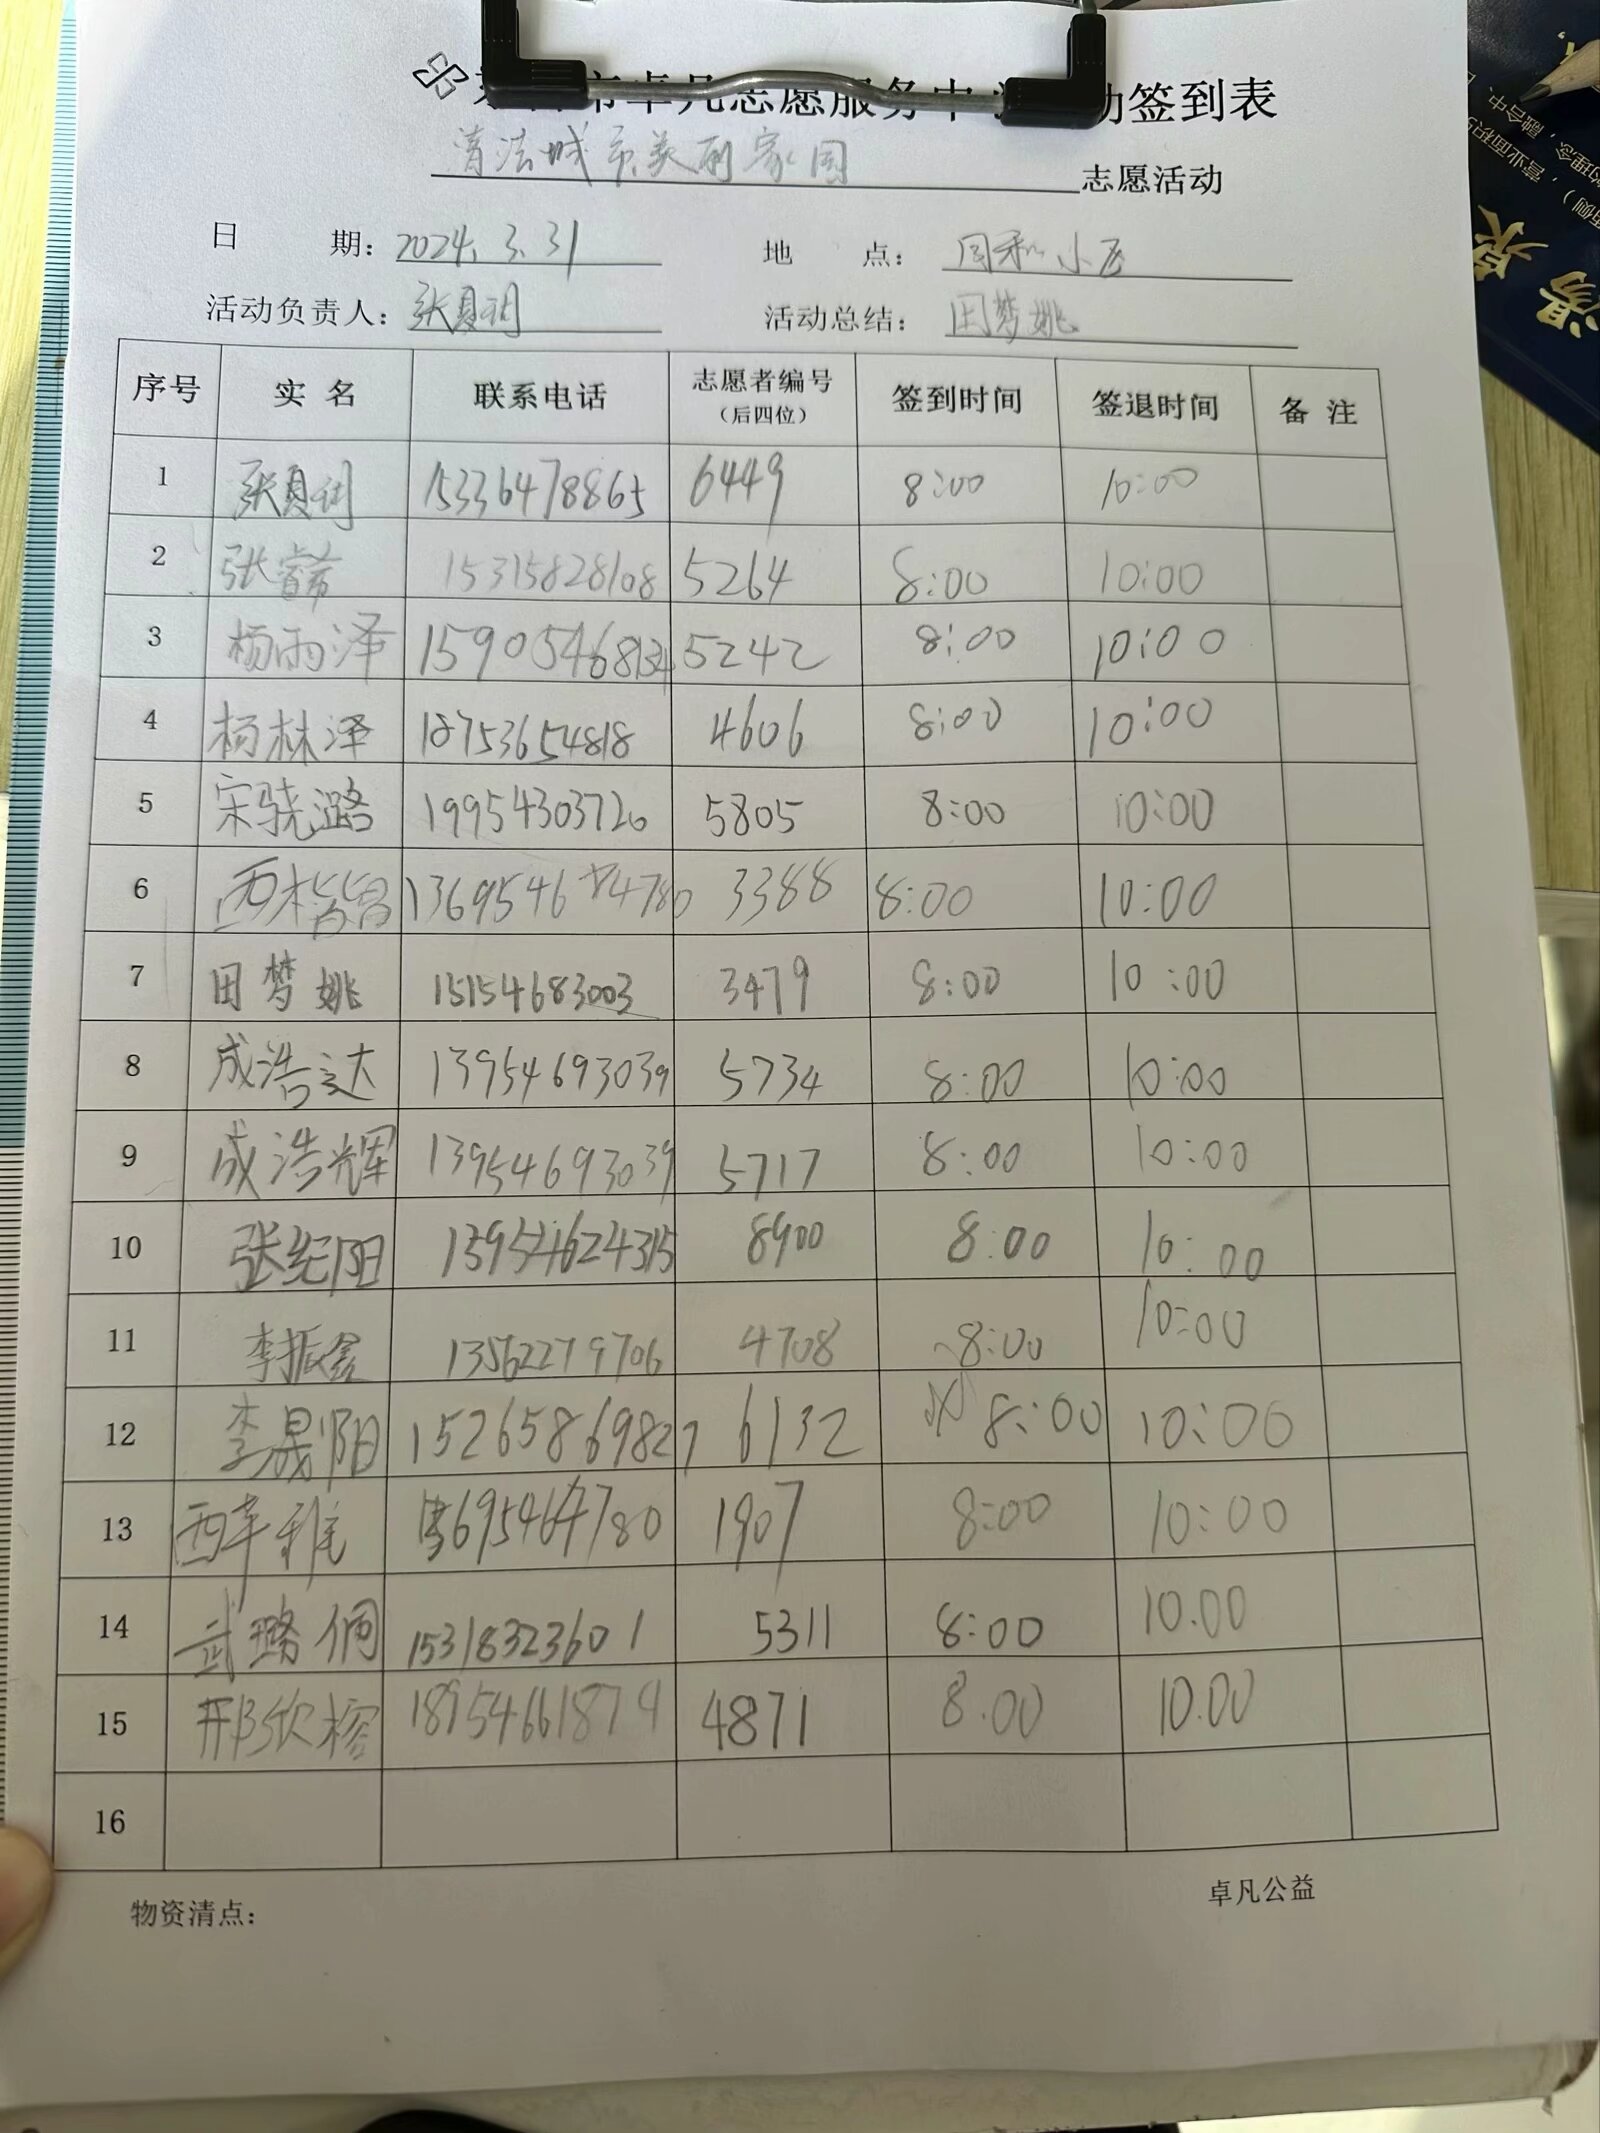 市卓凡志愿服务中 动签到表
清洁城市美丽家园 志愿活动
日 期: 2024.3.31 地 点: 同和小区
活动负责人: 张夏 活动总结: 田梦姚
序号 实 名 联系电话 志愿者编号 (后四位) 签到时间 签退时间 备 注
1 张夏 15336478865 6449 8:00 10:00
2 张 15315828108 5264 8:00 10:00
3 杨雨泽 15905468134 5242 8:00 10:00
4 杨林泽 18753654818 4606 8:00 10:00
5 宋骁潞 19954303720 5805 8:00 10:00
6 3388 8:00 10:00
7 田梦姚 15154683003 3479 8:00 10:00
8 成浩达 13954693039 5734 8:00 10:00
9 成浩辉 13954693039 5717 8:00 10:00
10 张纪阳 8900 8:00 10:00
11 李振鑫 13562279706 4708 8:00 10:00
12 李晟阳 15265869827 6132 8:00 10:00
13 13695464780 1907 8:00 10:00
14 武璐俩 15318323601 5311 8:00 10.00
15 邢欣榕 18954661879 4871 8.00 10.00
16
物资清点:
卓凡公益